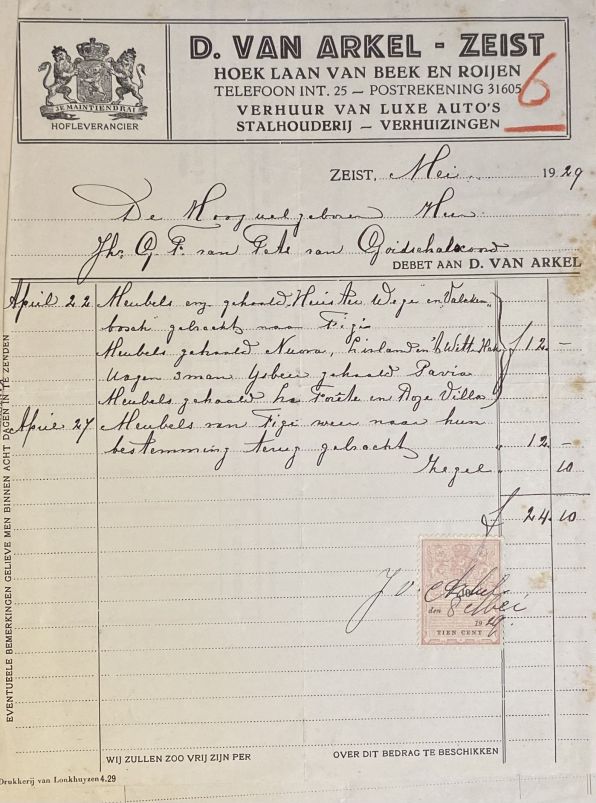 D. VAN ARKEL - ZEIST
HOEK LAAN VAN BEEK EN ROIJEN
TELEFOON INT. 25 — POSTREKENING 31605
VERHUUR VAN LUXE AUTO'S
STALHOUDERIJ — VERHUIZINGEN
6
JE MAINTIENDRAI
HOFLEVERANCIER
ZEIST, Mei 1929
De Hoog welgeboren Heer
Jhr. G. F. van Tets van Goidschalxoord
DEBET AAN D. VAN ARKEL
April 22 Meubels enz gehaald, Huis ter Wege en Valcken-
bosch gebracht naar Figi
Meubels gehaald Nuova, Linland en 't Witte Huis
Wagen 3 man Ysbeer gehaald Pavia ƒ 12.—
Meubels gehaald La Forète en Roze Villa
April 27 Meubels van Figi weer naar hun
bestemming terug gebracht " 12.—
Zegel " 10
ƒ 24.10
J v. Arkel
den 8 Mei
1929
TIEN CENT
WIJ ZULLEN ZOO VRIJ ZIJN PER OVER DIT BEDRAG TE BESCHIKKEN
EVENTUEELE BEMERKINGEN GELIEVE MEN BINNEN ACHT DAGEN IN TE ZENDEN
Drukkerij van Lonkhuyzen 4.29